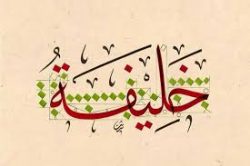 خَلِيفَة